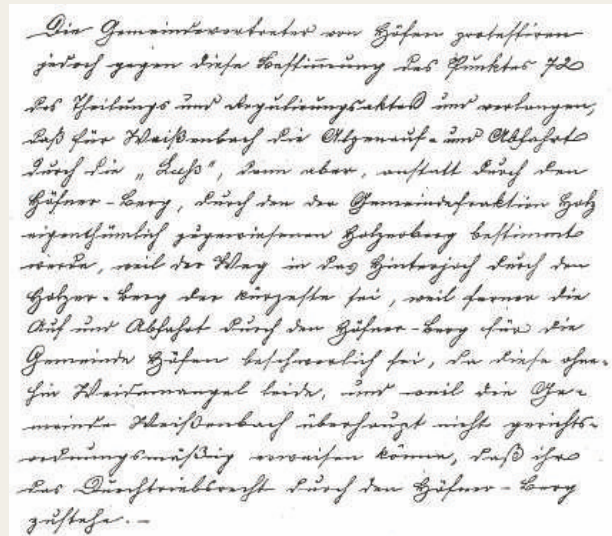 Die Gemeindevertreter von Höfen protestiren
jedoch gegen diese Bestimmung des Punktes 72
des Theilungs und Regulirungsaktes und verlangen,
daß für Weißenbach die Alpenauf- und Abfahrt
durch die „Lahs", dann aber, anstatt durch den
Höfner-Berg, durch den der Gemeindefraktion Holz
eigenthümlich zugewiesenen Holzerberg bestimmt
werde, weil der Weg in das Hinterjoch durch den
Holzer-Berg der kürzeste sei, weil ferner die
Auf und Abfahrt durch den Höfner-Berg für die
Gemeinde Höfen beschwerlich sei, da diese ohne-
hin Weidemangel leide, und weil die Ge-
meinde Weißenbach überhaupt nicht gerichts-
ordnungsmäßig erweisen könne, daß ihr
das Durchtriebsrecht durch den Höfner-Berg
zustehe. –